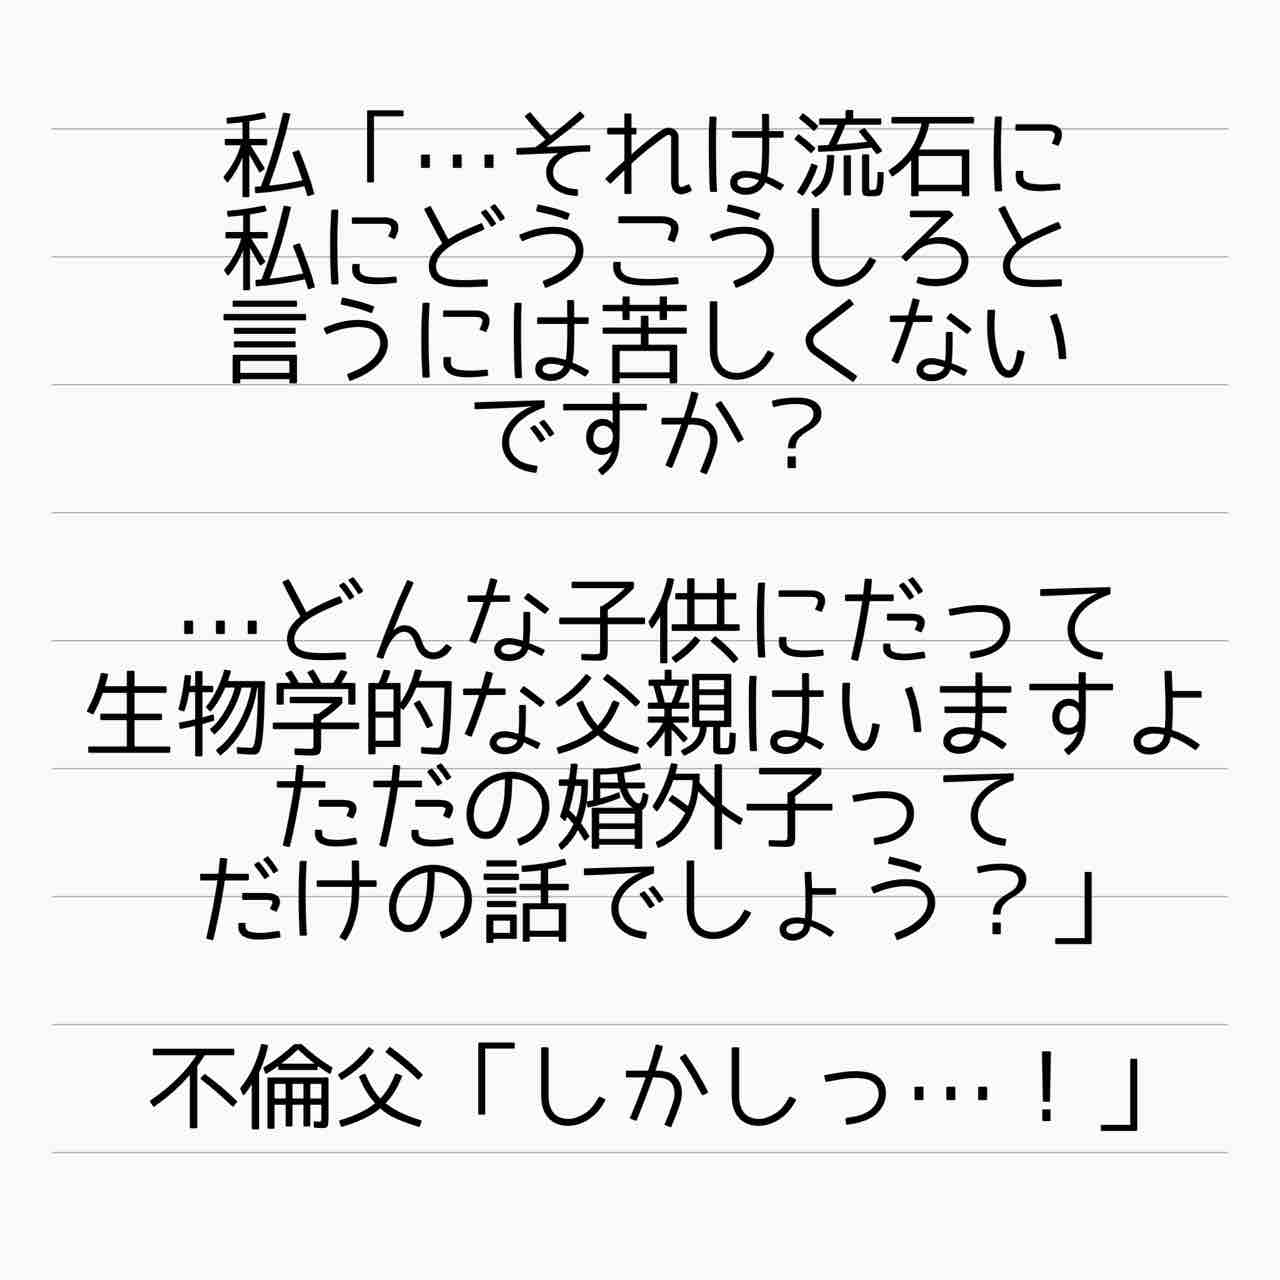 私「…それは流石に
私にどうこうしろと
言うには苦しくない
ですか？
…どんな子供にだって
生物学的な父親はいますよ
ただの婚外子って
だけの話でしょう？」
不倫父「しかしっ…！」